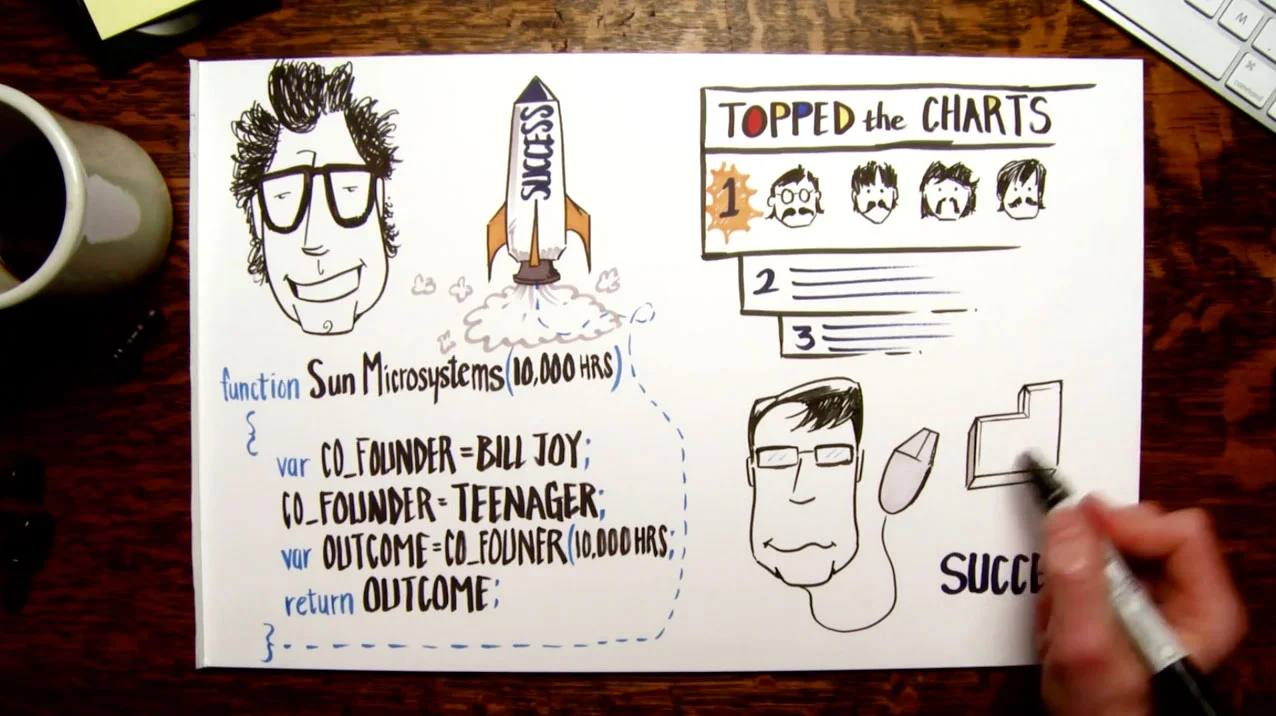 SUCCESS
function Sun Microsystems(10,000 HRS)
{
var CO_FOUNDER=BILL JOY;
CO_FOUNDER=TEENAGER;
var OUTCOME=CO_FOUNER(10,000HRS;
return OUTCOME;
}
TOPPED the CHARTS
1
2
3
SUCCE
M
command